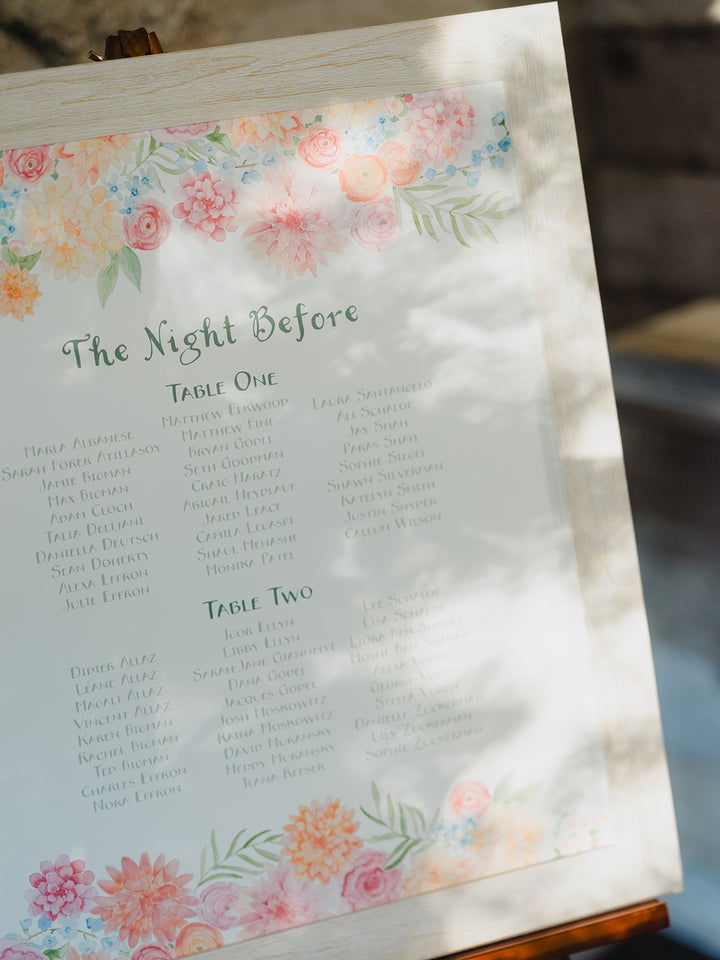 The Night Before
Table One
Marla Albanese
Sarah Forer Atillasoy
Jamie Bigman
Max Bigman
Adam Cloch
Talia Delijani
Daniella Deutsch
Sean Doherty
Alexa Effron
Julie Effron
Matthew Elkwood
Matthew Fine
Bryan Godel
Seth Goodman
Craig Haratz
Abigail Heydlauf
Jared Leace
Camila Legaspi
Shaul Menashe
Monika Patel
Laura Santangelo
Ali Schalop
Jay Shah
Paras Shah
Sophie Siegel
Shawn Silverman
Katelyn Smith
Justin Snyder
Callum Wilson
Table Two
Didier Allaz
Léane Allaz
Magali Allaz
Vincent Allaz
Karen Bigman
Rachel Bigman
Ted Bigman
Charles Effron
Nora Effron
Igor Ellyn
Libby Ellyn
Sarah-Jane Giannelli
Dana Godel
Jacques Godel
Josh Moskowitz
Raina Moskowitz
David Muransky
Heddy Muransky
Ilana Reeser
Lee Schalop
Lisa Schalop
Liora Ben-Shabat
Moshe Ben-Shabat
Alexa
George
Stella
Danielle Zuckerman
Lily Zuckerman
Sophie Zuckerman